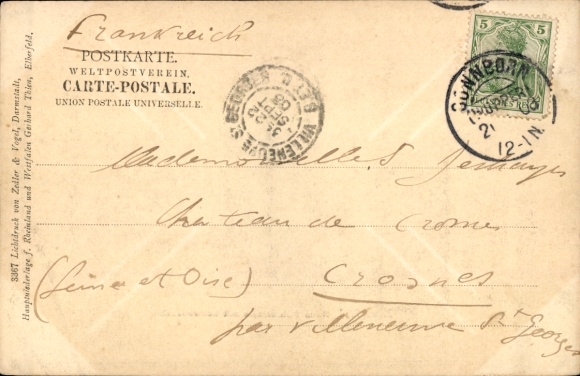 Frankreich
POSTKARTE.
WELTPOSTVEREIN.
CARTE-POSTALE.
UNION POSTALE UNIVERSELLE.
3367 Lichtdruck von Zedler & Vogel, Darmstadt,
Hauptniederlage f. Rheinland und Westfalen Gerhard Thien, Elberfeld.
5 5
SONNBORN
12-1N.
VILLENEUVE ST GEORGES
Mademoiselle
Chateau de Crosnes
Crosnes
(Seine et Oise)
par Villeneuve St Georges